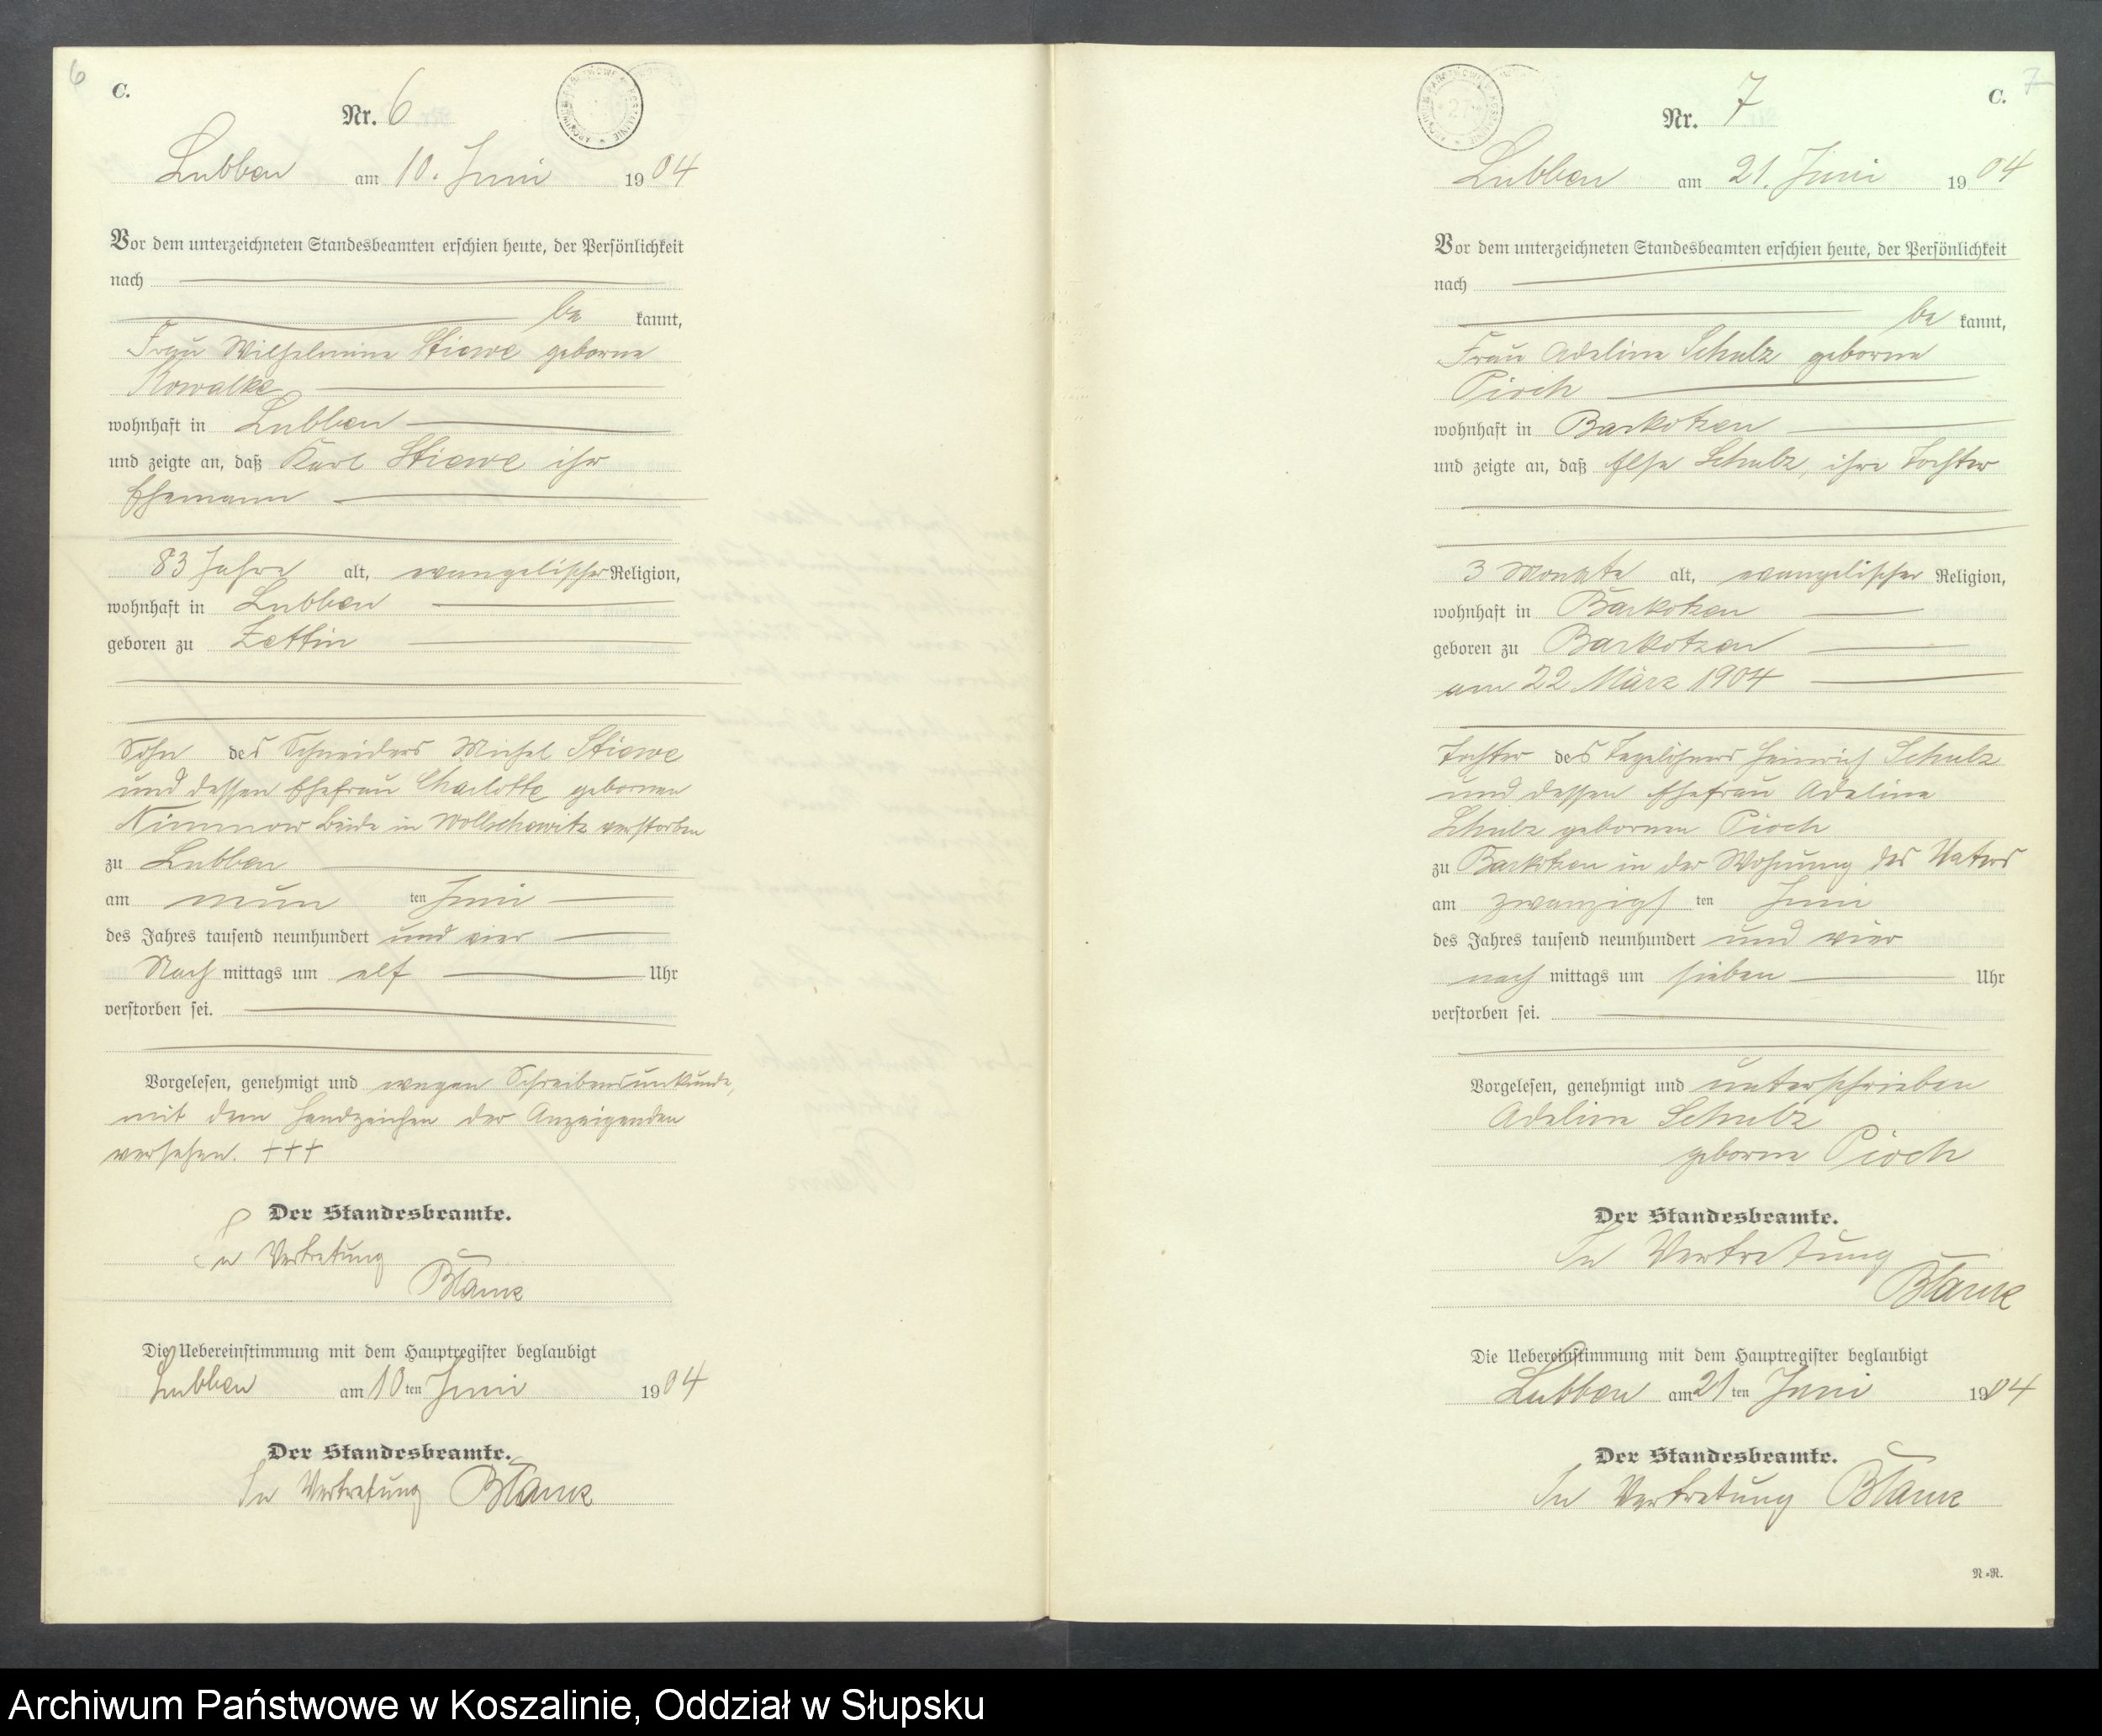 6
C.
Nr. 6
Lubben am 10. Juni 1904
Vor dem unterzeichneten Standesbeamten erschien heute, der Persönlichkeit
nach
be kannt,
Frau Wilhelmine Stiewe geborne
Kowalke
wohnhaft in Lubben
und zeigte an, daß Karl Stiewe ihr
Ehemann
83 Jahre alt, evangelischer Religion,
wohnhaft in Lubben
geboren zu Zettin
Sohn des Schneiders Michel Stiewe
und dessen Ehefrau Charlotte gebornen
Nimmow beide in verstorben
zu Lubben
am neun ten Juni
des Jahres tausend neunhundert und vier
Nach mittags um elf Uhr
verstorben sei.
Vorgelesen, genehmigt und wegen Schreibensunkunde,
mit dem Handzeichen der Anzeigenden
versehen. +++
Der Standesbeamte.
In Vertretung
Blank
Die Uebereinstimmung mit dem Hauptregister beglaubigt
Lubben am 10ten Juni 1904
Der Standesbeamte.
In Vertretung Blank
7
C.
Nr. 7
Lubben am 21. Juni 1904
Vor dem unterzeichneten Standesbeamten erschien heute, der Persönlichkeit
nach
be kannt,
Frau Adeline Schulz geborne
Pioch
wohnhaft in Barkotzen
und zeigte an, daß Else Schulz, ihre Tochter
3 Monate alt, evangelischer Religion,
wohnhaft in Barkotzen
geboren zu Barkotzen
am 22 März 1904
Tochter des Tagelöhners Heinrich Schulz
und dessen Ehefrau Adeline
Schulz gebornen Pioch
zu Barkotzen in der Wohnung des Vaters
am zwanzigs ten Juni
des Jahres tausend neunhundert und vier
nach mittags um sieben Uhr
verstorben sei.
Vorgelesen, genehmigt und unterschrieben
Adeline Schulz
geborne Pioch
Der Standesbeamte.
In Vertretung
Blank
Die Uebereinstimmung mit dem Hauptregister beglaubigt
Lubben am 21 ten Juni 1904
Der Standesbeamte.
In Vertretung Blank
N=R.
Archiwum Państwowe w Koszalinie, Oddział w Słupsku